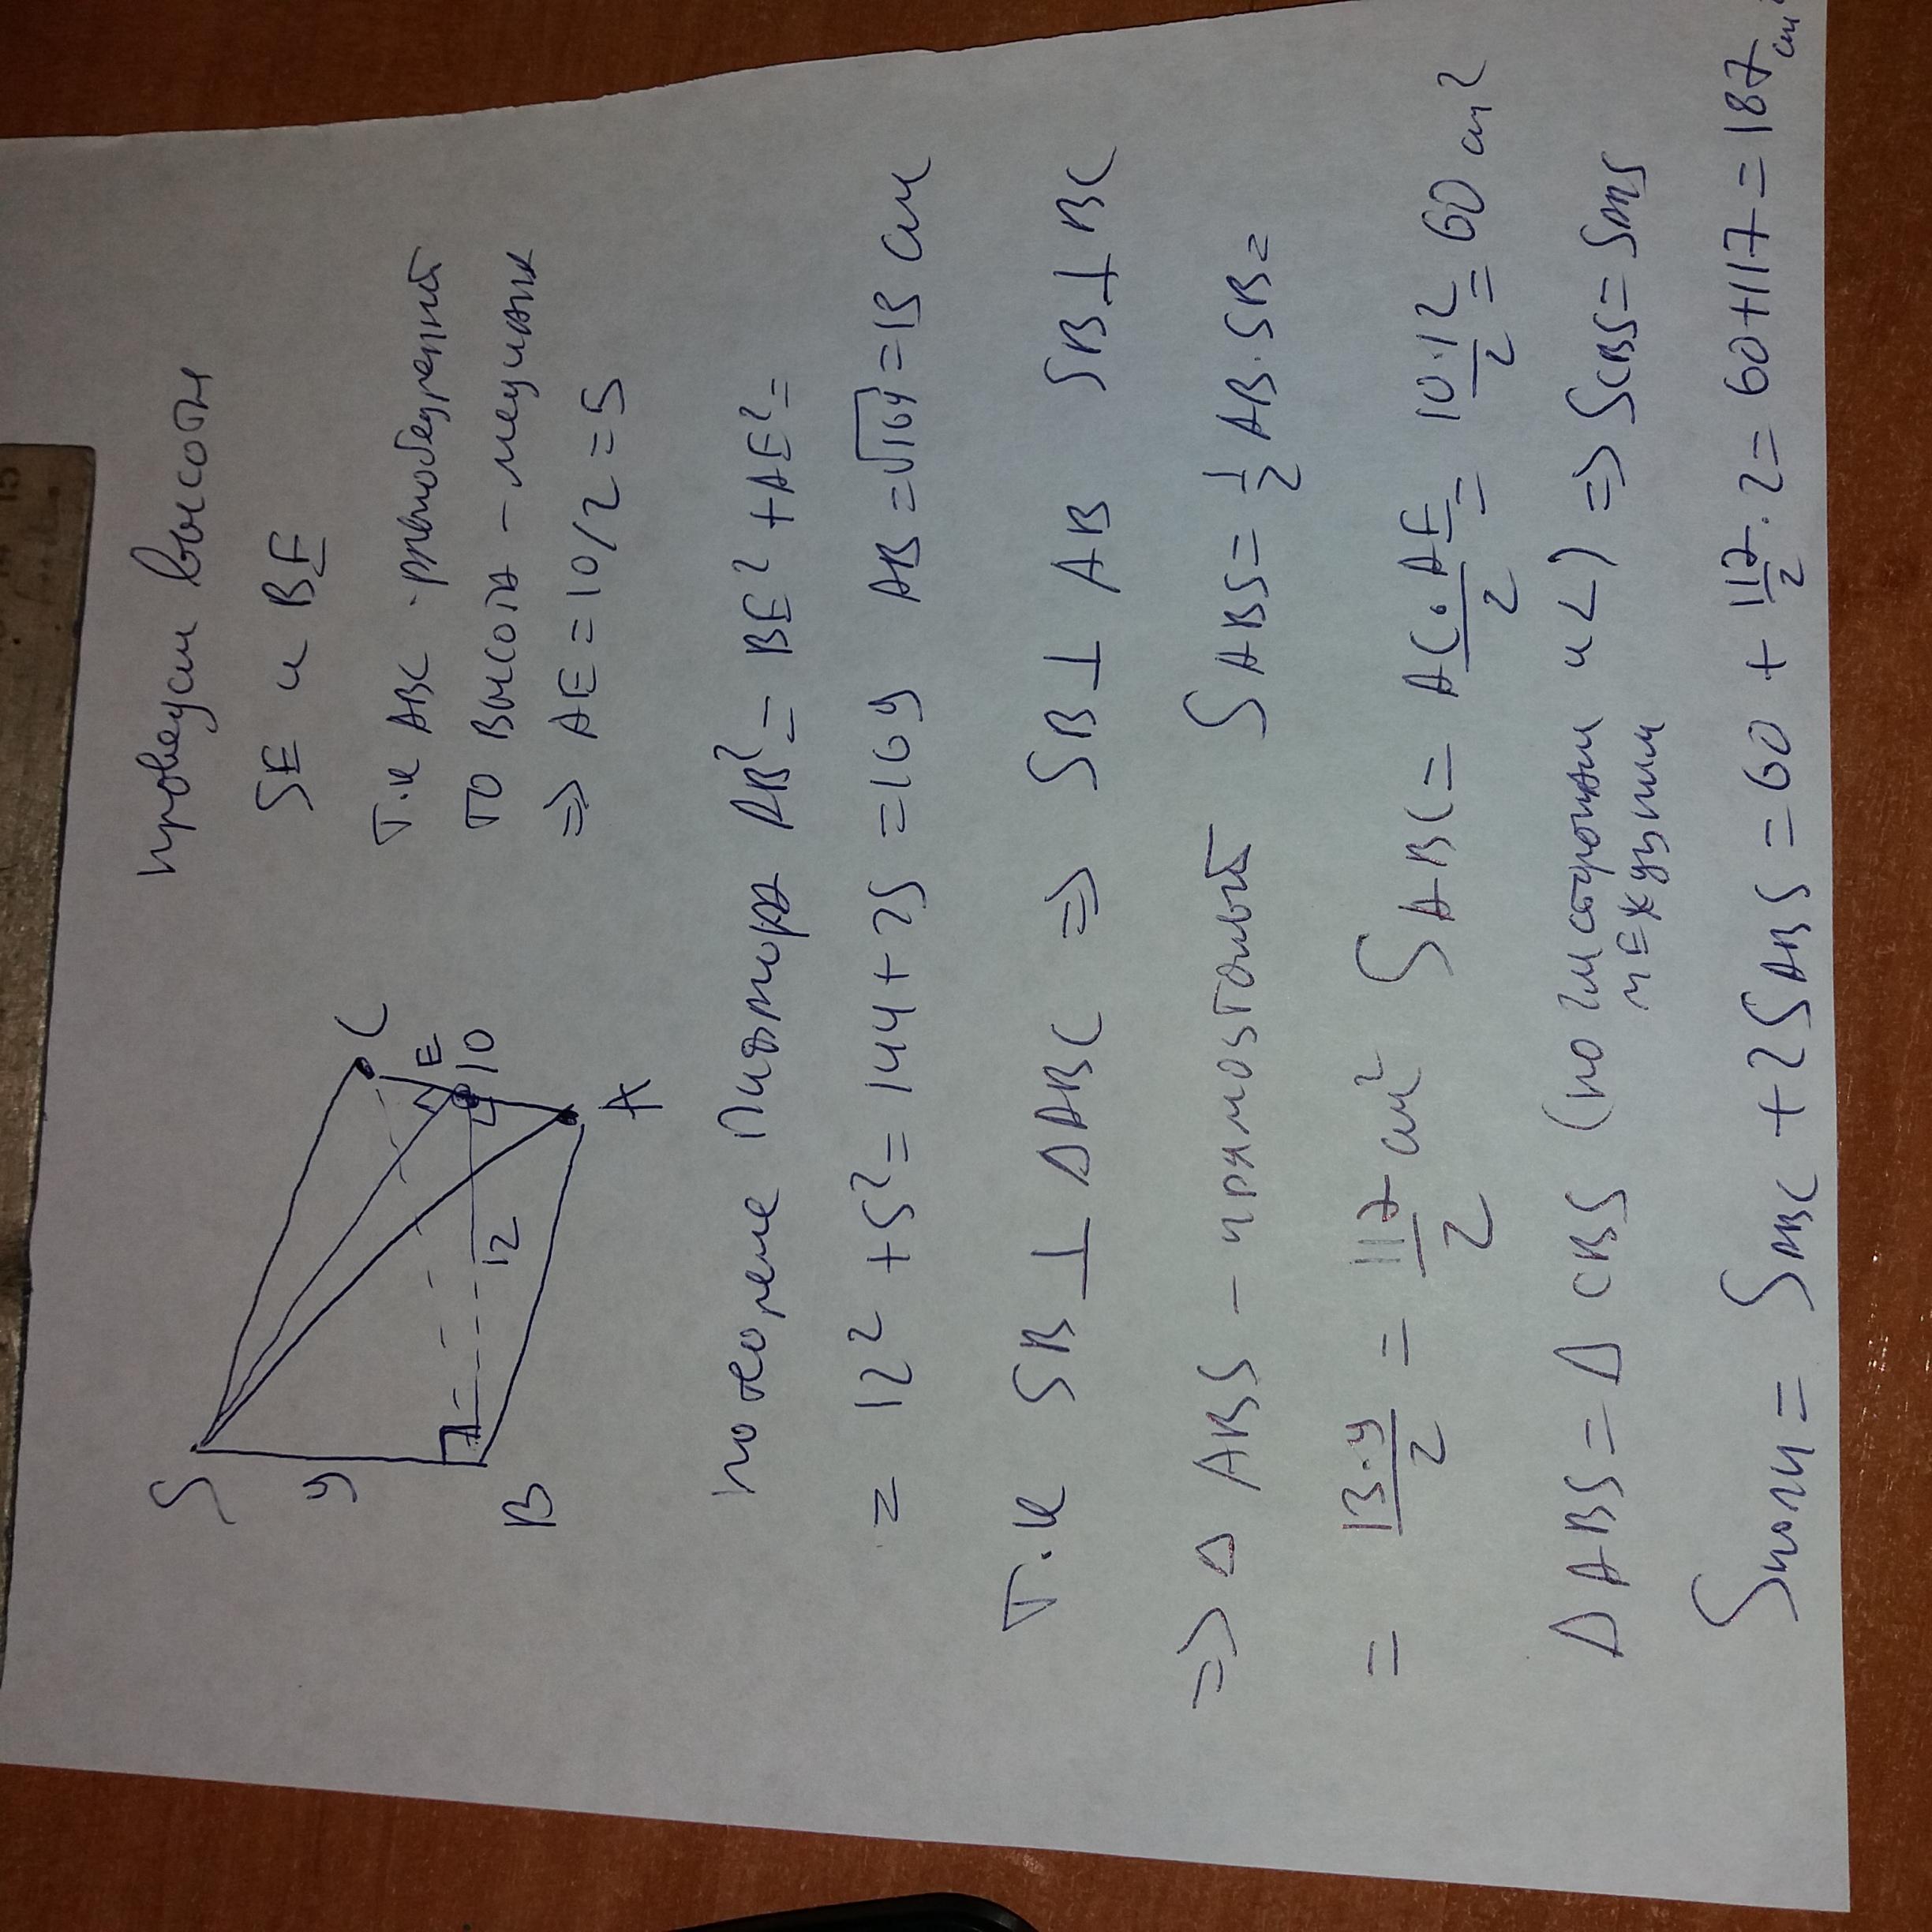 S
C
E
10
9
12
B
A
проведем высоты
SE и BE
т.к ABC - равнобедренный
то высота - медиана
=> AE = 10/2 = 5
по теореме Пифагора AB² = BE² + AE² =
= 12² + 5² = 144 + 25 = 169 AB = √169 = 13 см
т.к SB ⊥ ΔABC => SB ⊥ AB SB ⊥ BC
=> Δ ABS - прямоугольный S ABS = 1/2 AB · SB =
= 13·9/2 = 117/2 см² S ABC = AC · AE/2 = 10·12/2 = 60 см²
Δ ABS = Δ CBS (по 2м сторонам и <) => S CBS = S ABS
между ними
S полн = S ABC + 2S ABS = 60 + 117/2 · 2 = 60+117 = 187 см²
15